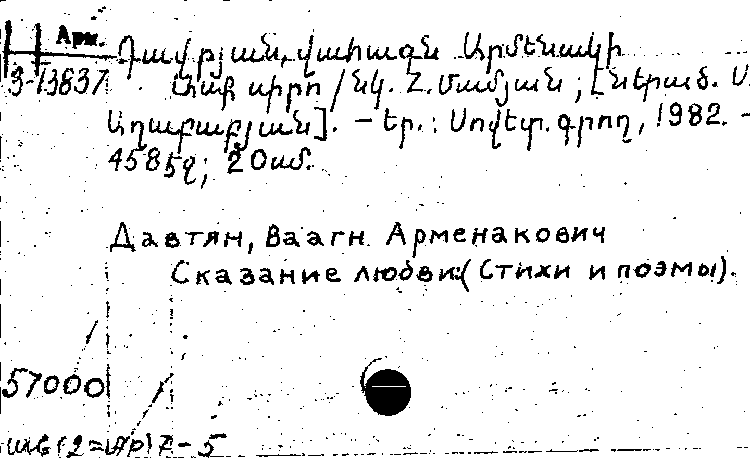 Арм. Դավթյան, Վահագն Արմենակի
3-13837 Ասք սիրո / Նկ. Հ. Մամյան ; [Ներած. Ս.
Աղաբաբյան]. — Եր. : Սովետ. գրող, 1982. —
458 էջ ; 20 սմ.
Давтян, Ваагн Арменакович
Сказание любви: (Стихи и поэмы).
57000